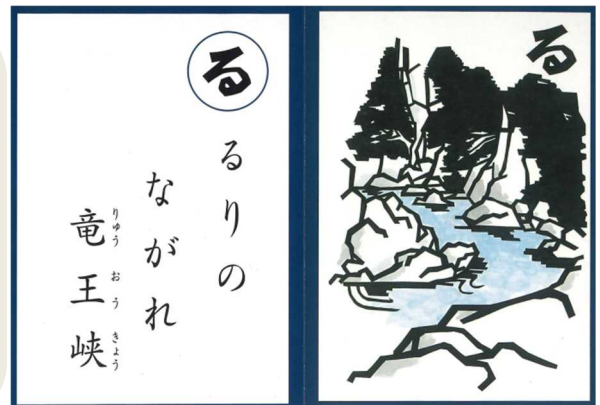 る
るりの
ながれ
竜王峡
りゅうおうきょう
る